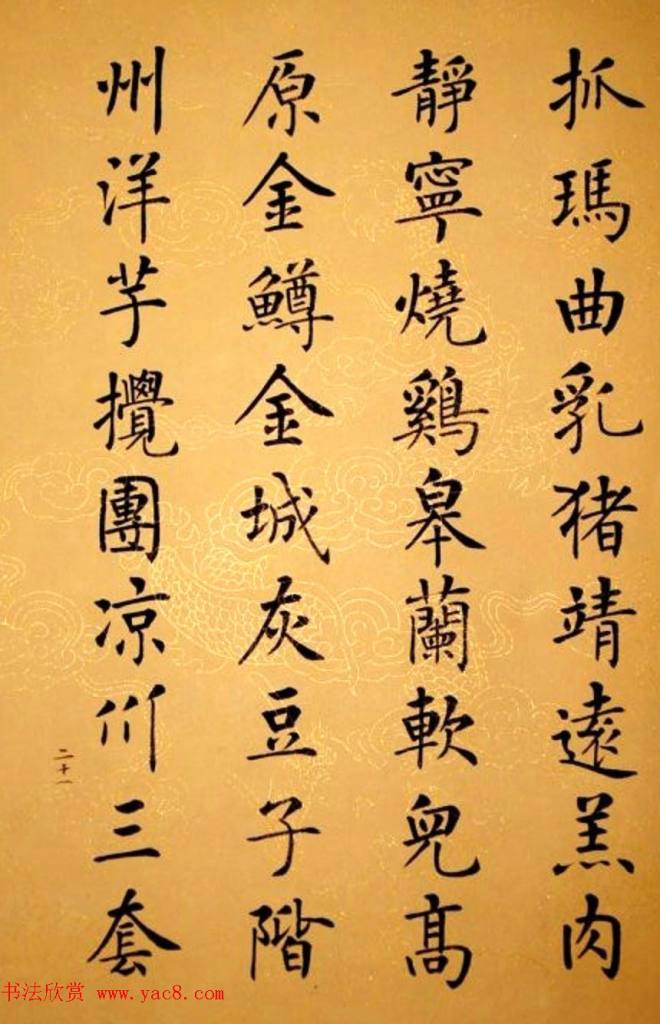 抓瑪曲乳猪靖遠羔肉
靜寧燒鷄皋蘭軟兒高
原金鱒金城灰豆子階
州洋芋攪團凉州三套
二十一
书法欣赏 www.yac8.com